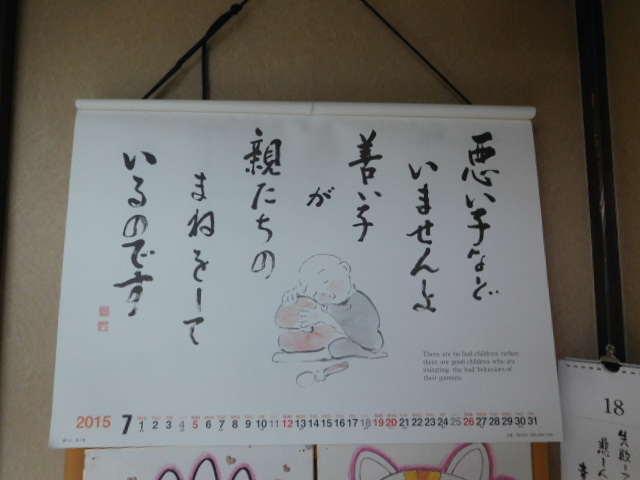 悪い子など
いませんよ
善い子
が
親たちの
まねをして
いるのです
There are no bad children, rather,
there are good children who are
imitating the bad behaviors of
their parents.
2015 7 1 2 3 4 5 6 7 8 9 10 11 12 13 14 15 16 17 18 19 20 21 22 23 24 25 26 27 28 29 30 31
18